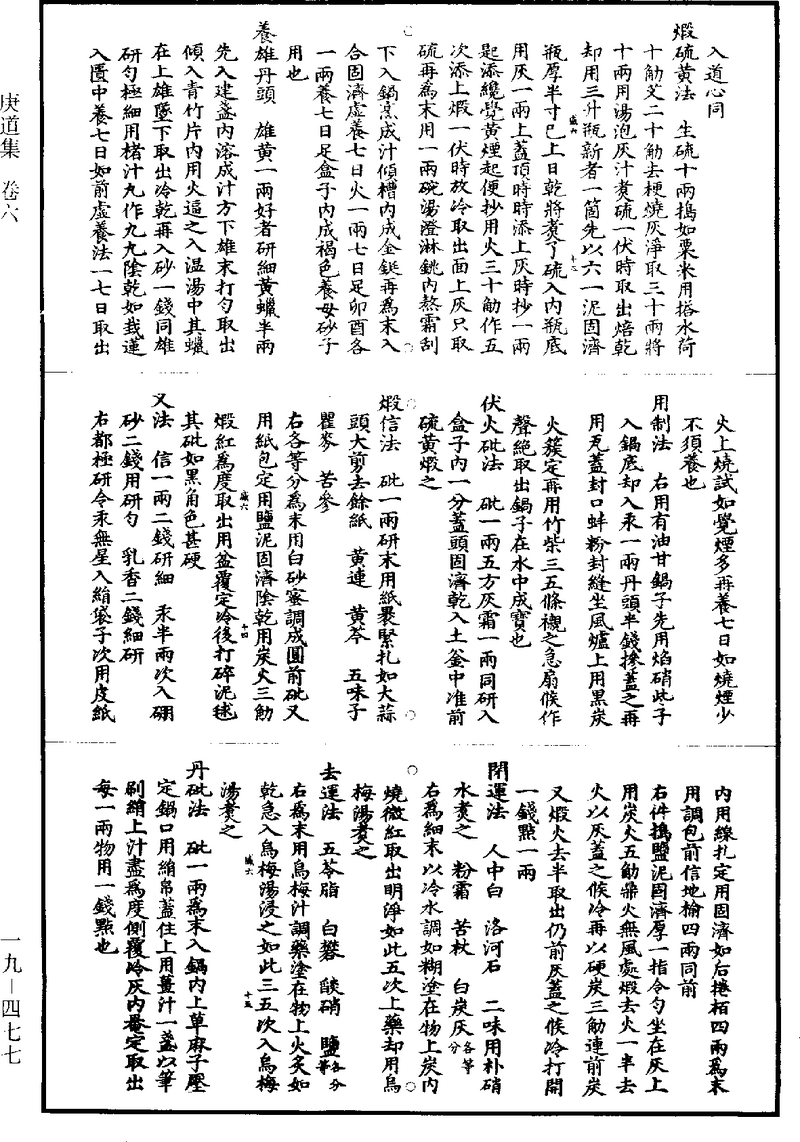 入道心同
煅硫黃法　生硫十兩搗如粟米用搭水荷
十觔艾二十觔去梗燒灰淨取三十兩將
十兩用湯泡灰汁煑硫一伏時取出焙乾
却用三升瓶新者一箇先以六一泥固濟
瓶厚半寸已上日乾將煑了硫入內瓶底
用灰一兩上蓋頂時時添上灰時抄一兩
起添纔覺黃煙起便抄用火三十觔作五
次添上煅一伏時放冷取出面上灰只取
硫再爲末用一兩碗湯澄淋銚內熬霜刮
下入鍋烹成汁傾槽內成金鋌再爲末入
合固濟虛養七日火一兩七日足卯酉各
一兩養七日足盒子內成褐色養母砂子
用也
養雄丹頭　雄黃一兩好者研細黃蠟半兩
先入建盞內溶成汁方下雄末打勻取出
傾入青竹片內用火逼之入温湯中其蠟
在上雄墜下取出冷乾再入砂一錢同雄
研勻極細用楮汁丸作九九陰乾如栽蓮
入匱中養七日如前虛養法一七日取出
火上燒試如覺煙多再養七日如燒煙少
不須養也
用制法　右用有油甘鍋子先用焰硝些子
入鍋底却入汞一兩丹頭半錢摻蓋之再
用瓦蓋封口蚌粉封縫坐風爐上用黑炭
火簇定再用竹柴三五條襯之急扇候作
聲絶取出鍋子在水中成寶也
伏火砒法　砒一兩五方灰霜一兩同研入
盒子內一分蓋頭固濟乾入土釜中准前
硫黃煅之
煅信法　砒一兩研末用紙褁緊扎如大蒜
頭大剪去餘紙　黃連　黃芩　五味子
瞿麥　苦參
右各等分爲末用白砂蜜調成圓前砒又
用紙包定用鹽泥固濟陰乾用炭火三觔
煅紅爲度取出用盆覆定冷後打碎泥毬
其砒如黑角色甚硬
又法　信一兩二錢研細　汞半兩次入硼
砂二錢用研勻　乳香二錢細研
右都極研令汞無星入絹袋子次用皮紙
內用線扎定用固濟如右捲栢四兩爲末
用調包前信地榆四兩同前
右件搗鹽泥固濟厚一指令勻坐在灰上
用炭火五觔鼎火無風處煅去火一半去
火以灰蓋之候冷再以硬炭三觔連前炭
又煅火去半取出仍前灰蓋之候冷打開
一錢點一兩
閉運法　人中白　洛河石　二味用朴硝
水煑之　粉霜　苦杖　白炭灰各等分
右爲細末以冷水調如糊塗在物上炭內
燒微紅取出明淨如此五次上藥却用烏
梅湯煑之
去運法　五苓脂　白礬　熖硝　鹽各等分
右爲末用烏梅汁調藥塗在物上火炙如
乾急入烏梅湯浸之如此三五次入烏梅
湯煑之
丹砒法　砒一兩爲末入鍋內上草麻子壓
定鍋口用絹帛蓋住上用薑汁一盞以筆
刷絹上汁盡爲度側覆冷灰內罨定取出
每一兩物用一錢點也
庚道集　卷六
一九－四七七